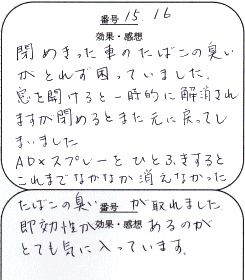 番号 15. 16
効果・感想
閉めきった車のたばこの臭い
がとれず困っていました.
窓を開けると一時的に解消され
ますが閉めるとまた元に戻ってし
まいました
ADXスプレーをひとふきすると
これまでなかなか消えなかった
たばこの臭い 番号 が取れました.
即効性が 効果・感想 あるのが
とても気に入っています.